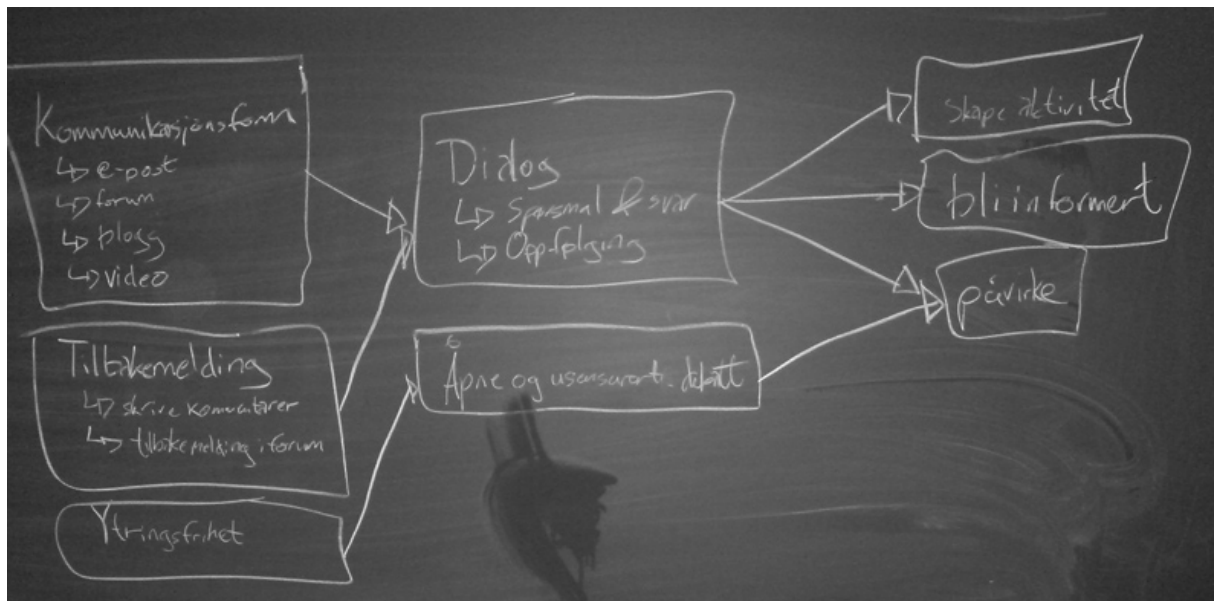 Kommunikasjonsform
↳ e-post
↳ forum
↳ blogg
↳ video
Tilbakemelding
↳ skrive komentarer
↳ tilbakemelding i forum
Ytringsfrihet
Dialog
↳ Spørsmal & svar
↳ Oppfølging
Åpne og usensurert debatt
Skape aktivitet
bli informert
påvirke